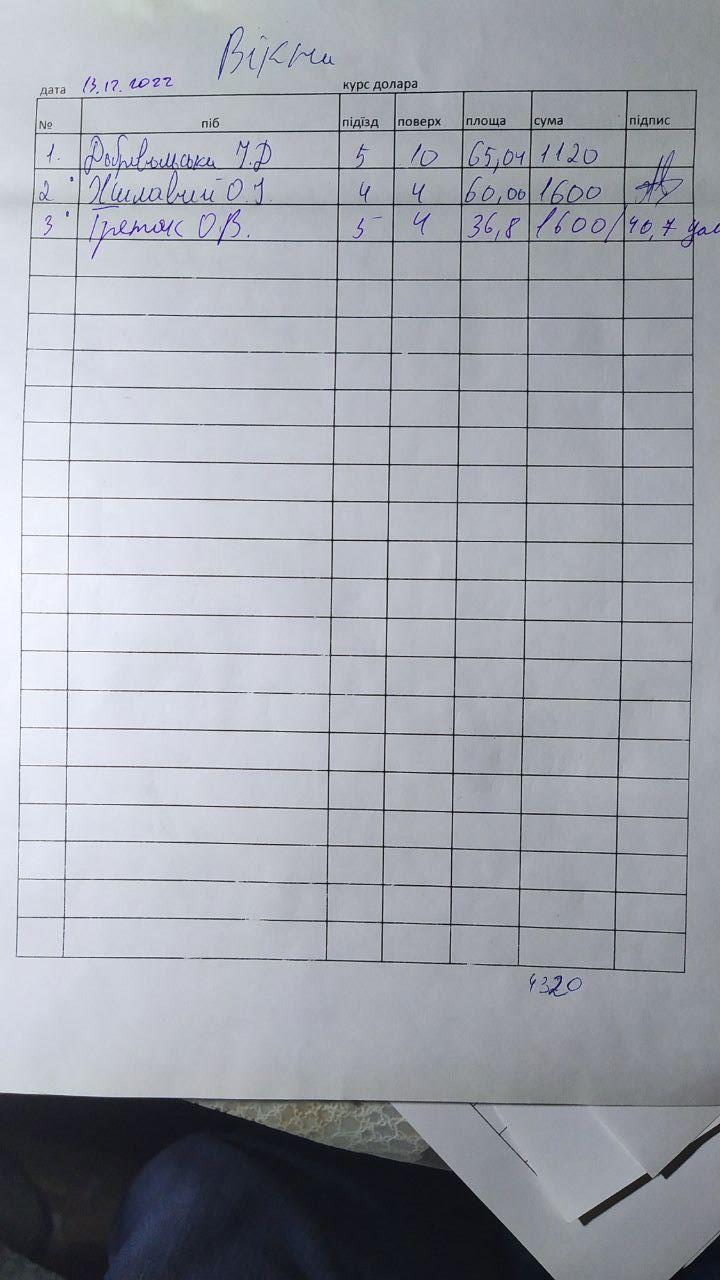 Вікна
дата 13.12.2022 курс долара
№ піб підїзд поверх площа сума підпис
1. Добровольська 5 10 65,04 1120
2. О.І. 4 4 60,00 1600
3. О.В. 5 4 36,8 1600/40,7
4320